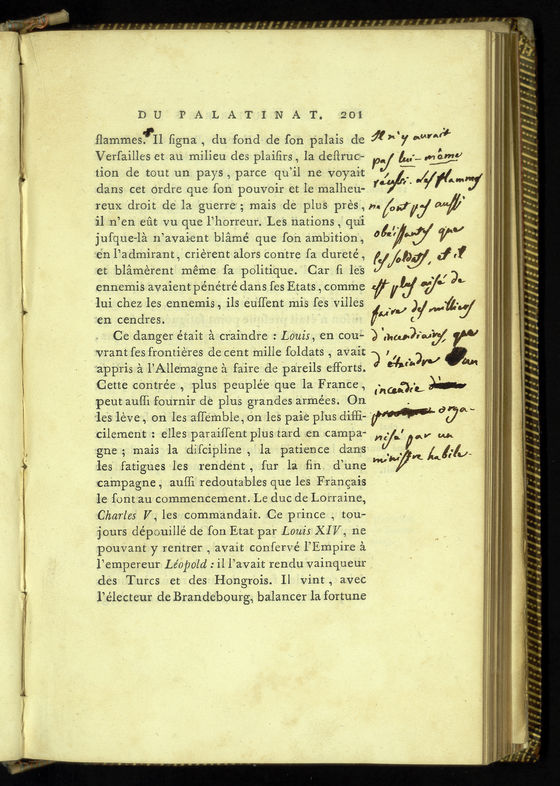 DU PALATINAT. 201
flammes. Il ſigna, du fond de ſon palais de
Verſailles et au milieu des plaiſirs, la deſtruc-
tion de tout un pays, parce qu'il ne voyait
dans cet ordre que ſon pouvoir et le malheu-
reux droit de la guerre ; mais de plus près,
il n'en eût vu que l'horreur. Les nations, qui
juſque-là n'avaient blâmé que ſon ambition,
en l'admirant, crièrent alors contre ſa dureté,
et blâmèrent même ſa politique. Car ſi les
ennemis avaient pénétré dans ſes Etats, comme
lui chez les ennemis, ils euſſent mis ſes villes
en cendres.
Ce danger était à craindre : Louis, en cou-
vrant ſes frontières de cent mille ſoldats, avait
appris à l'Allemagne à faire de pareils efforts.
Cette contrée, plus peuplée que la France,
peut auſſi fournir de plus grandes armées. On
les lève, on les aſſemble, on les paie plus diffi-
cilement : elles paraiſſent plus tard en campa-
gne ; mais la diſcipline, la patience dans
les fatigues les rendent, ſur la fin d'une
campagne, auſſi redoutables que les Français
le ſont au commencement. Le duc de Lorraine,
Charles V, les commandait. Ce prince, tou-
jours dépouillé de ſon Etat par Louis XIV, ne
pouvant y rentrer, avait conſervé l'Empire à
l'empereur Léopold : il l'avait rendu vainqueur
des Turcs et des Hongrois. Il vint, avec
l'électeur de Brandebourg, balancer la fortune
Il n'y aurait
pas lui-même
réuſſi. les flammes
ne ſont pas auſſi
obéiſſantes que
les ſoldats, et il
eſt plus aiſé de
faire des milliers
d'incendiaires, que
d'éteindre un
incendie
orga-
niſé par un
miniſtre habile.